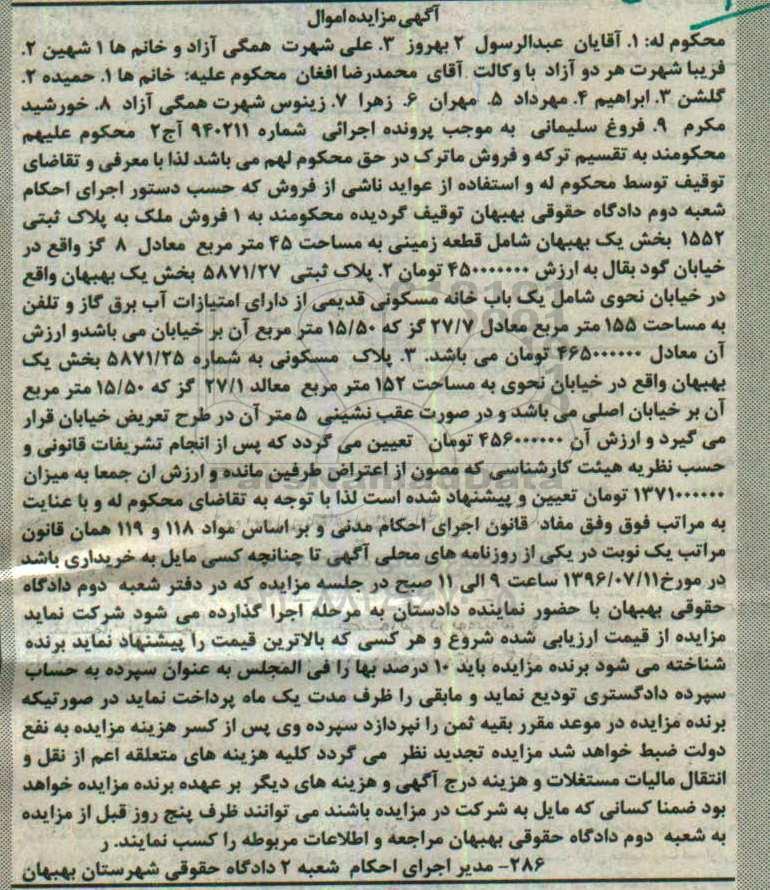 آگهی مزایده اموال
محکوم له: ۱. آقایان عبدالرسول ۲ بهروز ۳. علی شهرت همگی آزاد و خانم ها ۱ شهین ۲.
فریبا شهرت هر دو آزاد با وکالت آقای محمدرضا افغان محکوم علیه: خانم ها ۱. حمیده ۲.
گلشن ۳. ابراهیم ۴. مهرداد ۵. مهران ۶. زهرا ۷. زینوس شهرت همگی آزاد ۸. خورشید
مکرم ۹. فروغ سلیمانی به موجب پرونده اجرائی شماره ۹۴۰۲۱۱ آج۲ محکوم علیهم
محکومند به تقسیم ترکه و فروش ماترک در حق محکوم لهم می باشد لذا با معرفی و تقاضای
توقیف توسط محکوم له و استفاده از عواید ناشی از فروش که حسب دستور اجرای احکام
شعبه دوم دادگاه حقوقی بهبهان توقیف گردیده محکومند به ۱ فروش ملک به پلاک ثبتی
۱۵۵۲ بخش یک بهبهان شامل قطعه زمینی به مساحت ۴۵ متر مربع معادل ۸ گز واقع در
خیابان گود بقال به ارزش ۴۵۰۰۰۰۰۰۰ تومان ۲. پلاک ثبتی ۵۸۷۱/۲۷ بخش یک بهبهان واقع
در خیابان نحوی شامل یک باب خانه مسکونی قدیمی از دارای امتیازات آب برق گاز و تلفن
به مساحت ۱۵۵ متر مربع معادل ۲۷/۷ گز که ۱۵/۵۰ متر مربع آن بر خیابان می باشدو ارزش
آن معادل ۴۶۵۰۰۰۰۰۰ تومان می باشد. ۳. پلاک مسکونی به شماره ۵۸۷۱/۲۵ بخش یک
بهبهان واقع در خیابان نحوی به مساحت ۱۵۲ متر مربع معالد ۲۷/۱ گز که ۱۵/۵۰ متر مربع
آن بر خیابان اصلی می باشد و در صورت عقب نشینی ۵ متر آن در طرح تعریض خیابان قرار
می گیرد و ارزش آن ۴۵۶۰۰۰۰۰۰ تومان تعیین می گردد که پس از انجام تشریفات قانونی و
حسب نظریه هیئت کارشناسی که مصون از اعتراض طرفین مانده و ارزش ان جمعا به میزان
۱۳۷۱۰۰۰۰۰۰ تومان تعیین و پیشنهاد شده است لذا با توجه به تقاضای محکوم له و با عنایت
به مراتب فوق وفق مفاد قانون اجرای احکام مدنی و بر اساس مواد ۱۱۸ و ۱۱۹ همان قانون
مراتب یک نوبت در یکی از روزنامه های محلی آگهی تا چنانچه کسی مایل به خریداری باشد
در مورخ۱۳۹۶/۰۷/۱۱ ساعت ۹ الی ۱۱ صبح در جلسه مزایده که در دفتر شعبه دوم دادگاه
حقوقی بهبهان با حضور نماینده دادستان به مرحله اجرا گذارده می شود شرکت نماید
مزایده از قیمت ارزیابی شده شروع و هر کسی که بالاترین قیمت را پیشنهاد نماید برنده
شناخته می شود برنده مزایده باید ۱۰ درصد بها را فی المجلس به عنوان سپرده به حساب
سپرده دادگستری تودیع نماید و مابقی را ظرف مدت یک ماه پرداخت نماید در صورتیکه
برنده مزایده در موعد مقرر بقیه ثمن را نپردازد سپرده وی پس از کسر هزینه مزایده به نفع
دولت ضبط خواهد شد مزایده تجدید نظر می گردد کلیه هزینه های متعلقه اعم از نقل و
انتقال مالیات مستغلات و هزینه درج آگهی و هزینه های دیگر بر عهده برنده مزایده خواهد
بود ضمنا کسانی که مایل به شرکت در مزایده باشند می توانند ظرف پنج روز قبل از مزایده
به شعبه دوم دادگاه حقوقی بهبهان مراجعه و اطلاعات مربوطه را کسب نمایند. ر
۲۸۶- مدیر اجرای احکام شعبه ۲ دادگاه حقوقی شهرستان بهبهان